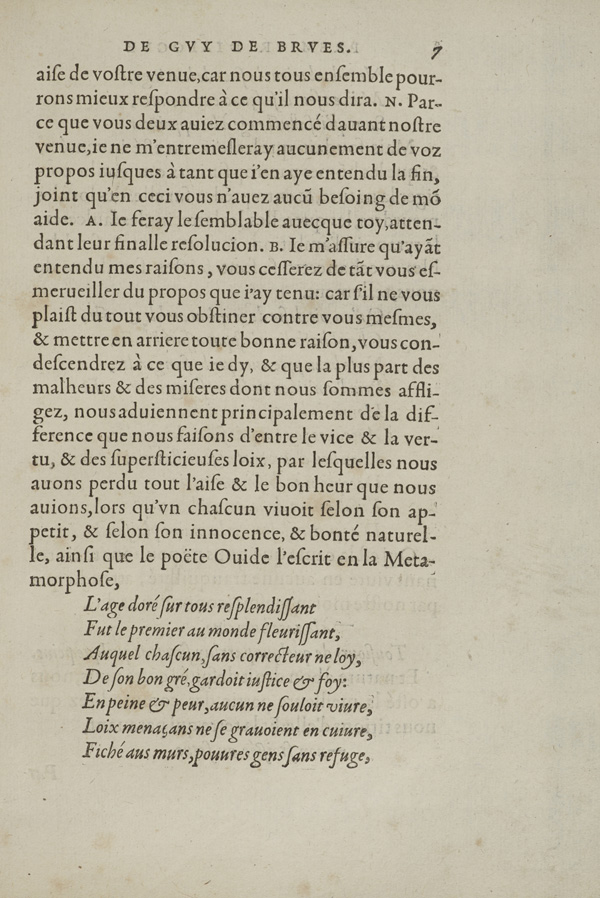 DE GVY DE BRVES. 7
aiſe de voſtre venue, car nous tous enſemble pour-
rons mieux reſpondre à ce qu'il nous dira. N. Par-
ce que vous deux auiez commencé dauant noſtre
venue, ie ne m'entremeſleray aucunement de voz
propos iuſques à tant que i'en aye entendu la fin,
joint qu'en ceci vous n'auez aucũ beſoing de mõ
aide. A. Ie feray le ſemblable auecque toy, atten-
dant leur finalle reſolucion. B. Ie m'aſſure qu'ayãt
entendu mes raiſons, vous ceſſerez de tãt vous eſ-
merueiller du propos que i'ay tenu: car ſ'il ne vous
plaiſt du tout vous obſtiner contre vous meſmes,
& mettre en arriere toute bonne raiſon, vous con-
deſcendrez à ce que ie dy, & que la plus part des
malheurs & des miſeres dont nous ſommes affli-
gez, nous aduiennent principalement de la dif-
ference que nous faiſons d'entre le vice & la ver-
tu, & des ſuperſticieuſes loix, par leſquelles nous
auons perdu tout l'aiſe & le bon heur que nous
auions, lors qu'vn chaſcun viuoit ſelon ſon ap-
petit, & ſelon ſon innocence, & bonté naturel-
le, ainſi que le poëte Ouide l'eſcrit en la Meta-
morphoſe,
L'age doré ſur tous reſplendiſſant
Fut le premier au monde fleuriſſant,
Auquel chaſcun, ſans correcteur ne loy,
De ſon bon gré, gardoit iuſtice & foy:
En peine & peur, aucun ne ſouloit viure,
Loix menaçans ne ſe grauoient en cuiure,
Fiché aus murs, pouures gens ſans refuge,